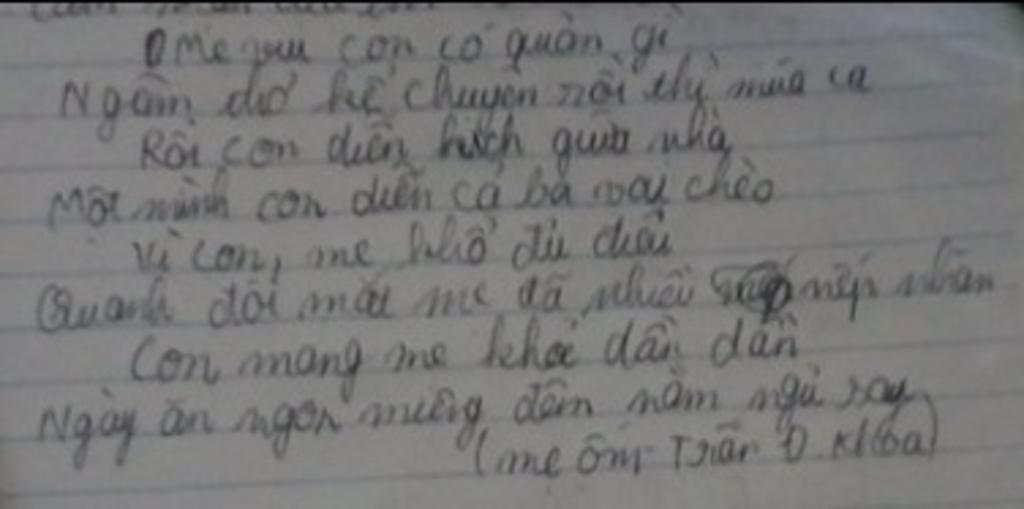 Mẹ vui con có quản gì
Ngâm thơ kể chuyện rồi thì múa ca
Rồi con diễn kịch giữa nhà
Một mình con diễn cả ba vai chèo
Vì con, mẹ khổ đủ điều
Quanh đôi mắt mẹ đã nhiều nếp nhăn
Con mong mẹ khỏe dần dần
Ngày ăn ngon miệng, đêm nằm ngủ say
(mẹ ốm Trần Đ Khoa)